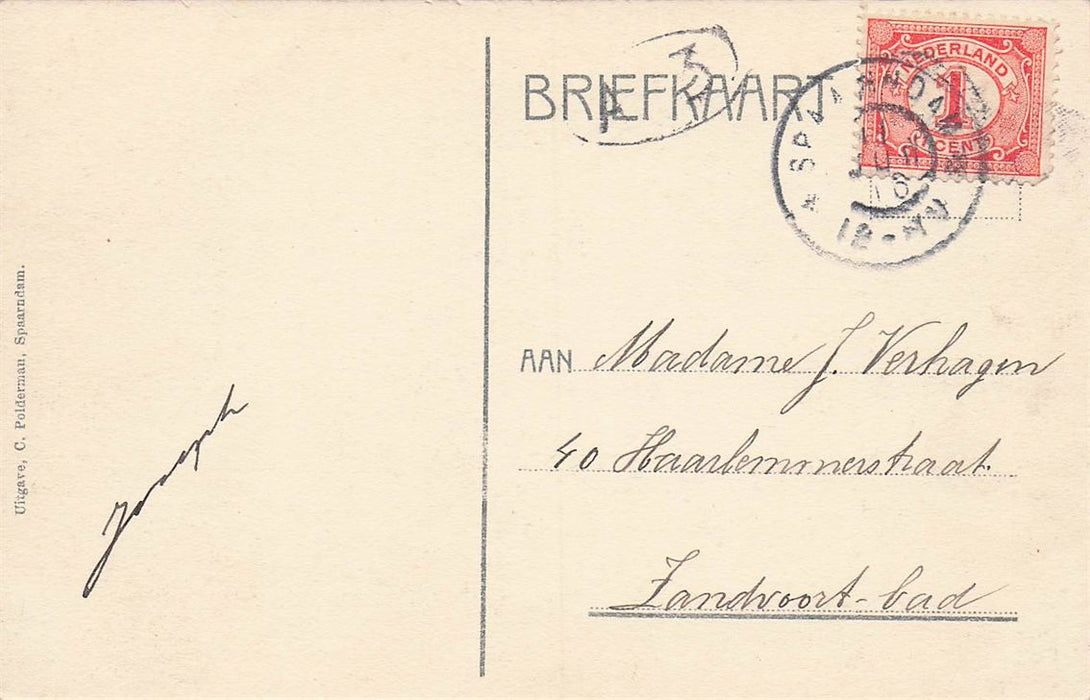 BRIEFKAART
NEDERLAND
1
CENT
SPAARNDAM
16
12-
AAN Madame J. Verhagen
40 Haarlemmerstraat.
Zandvoort-bad
Uitgave, C. Polderman, Spaarndam.